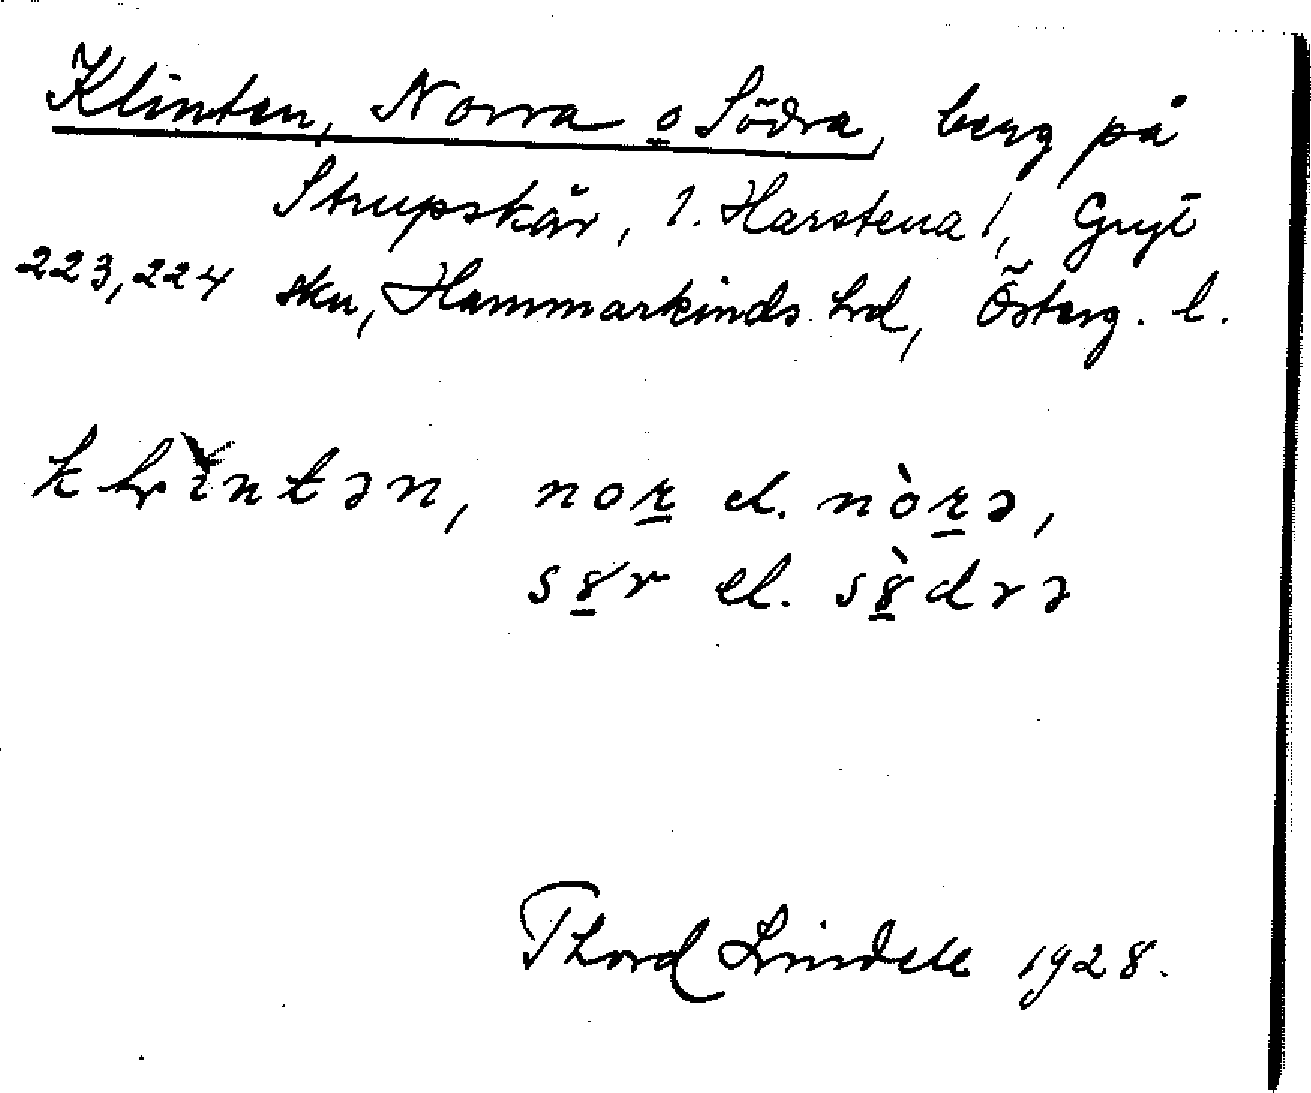 Klinten, Norra o Södra, berg på
Strupskär, 1. Harstena 1, Gryt
223,224 skn, Hammarkinds hd, Österg. l.
klìntən, nor̲ el. nòr̲ə,
sɤ̲r el. sɤ̲̀drə
Thord Lindell 1928.